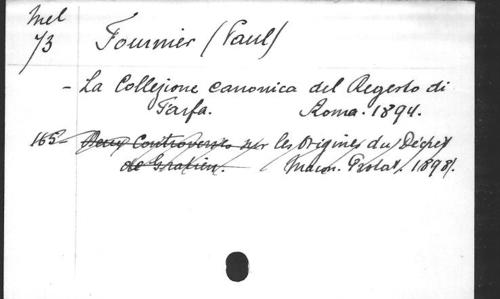 Mel
73
Fournier (Paul)
- La Collezione canonica del Regesto di
Farfa. Roma. 1894.
165- Deux Controverses sur les Origines du Décret
de Gratien. Macon. Protat. 1898.